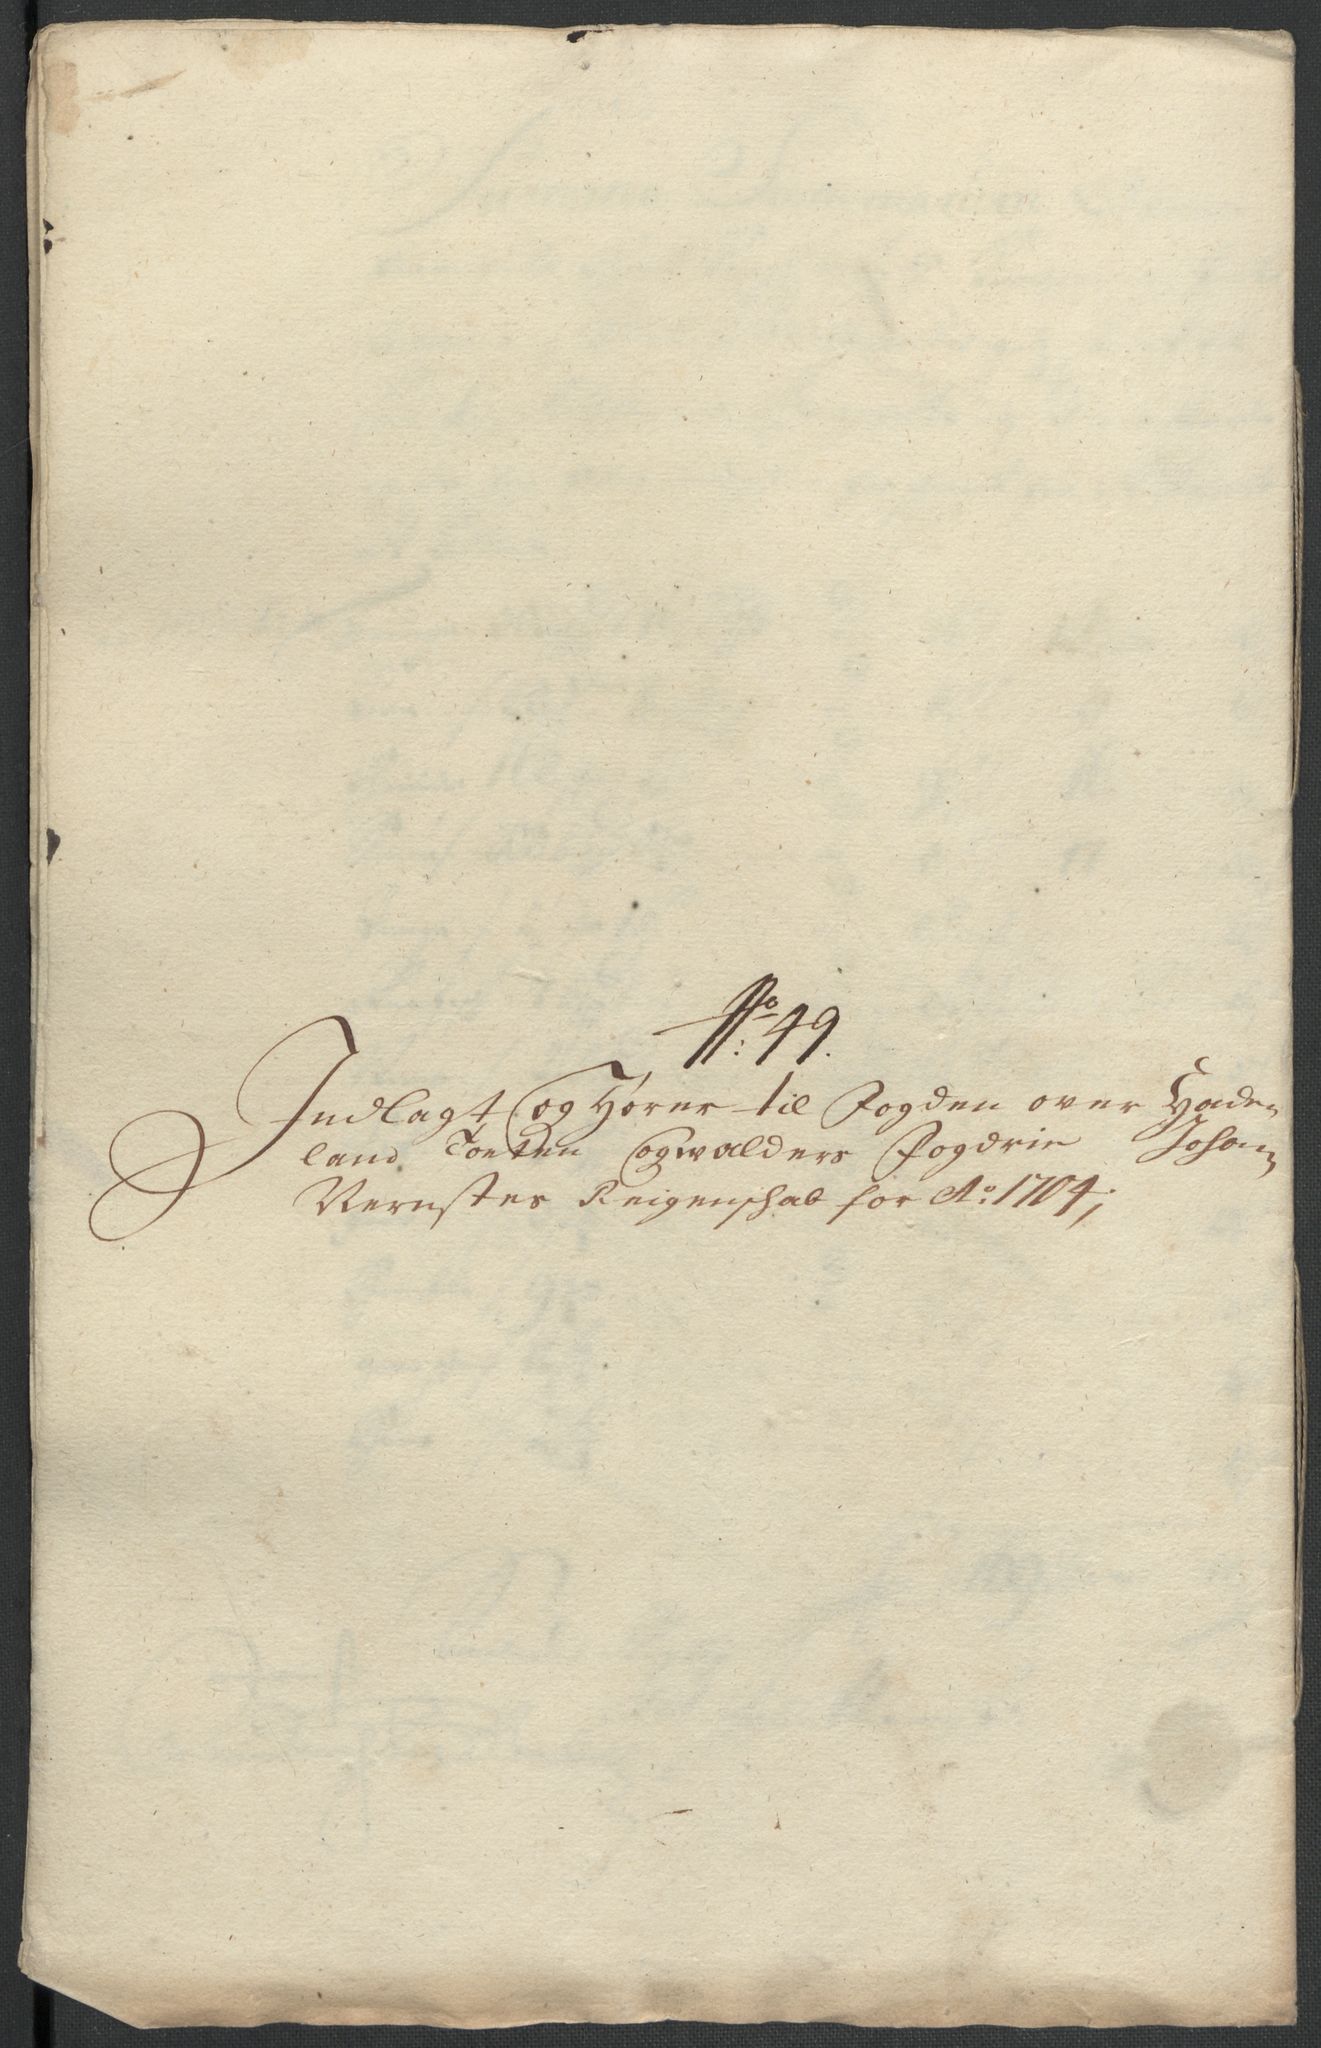 No: 49.
Indlagt, og Hører til Fogden over Hade-
land Toeten og walders Fogdrie Johan
Vernstes Reigenschab for Ao: 1704,